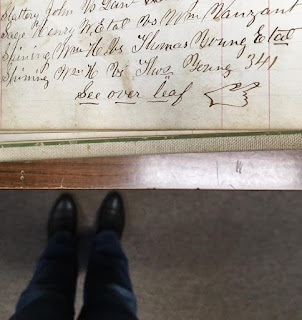 Slattery John
Sage Henry W Etal vs Wm Vanzant
Spining Wm H. Vs Thomas Young Etal
Spining Wm H. Vs Thos Benny 341
See over leaf